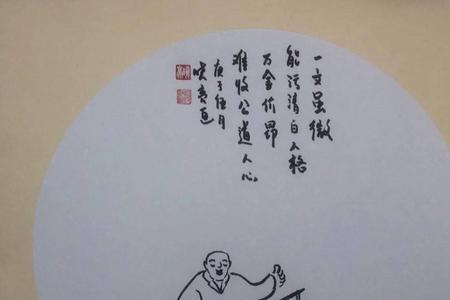 一文虽微
能污清白人格
万金价昂
难收公道人心。
庚子伍月